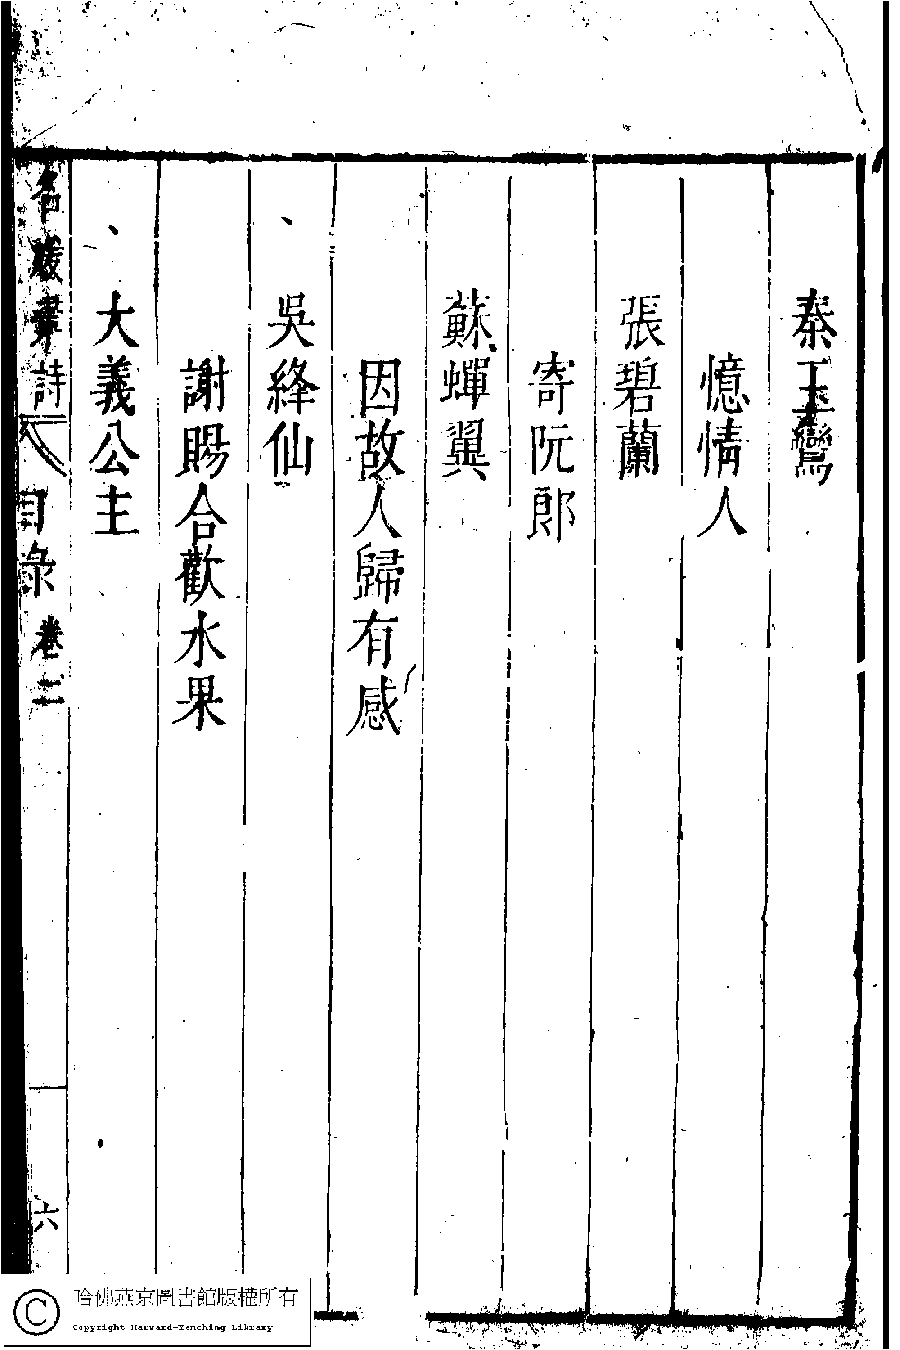 秦玉鸞
憶情人
張碧蘭
寄阮郎
蘇蟬翼
因故人歸有感
吳絳仙
謝賜合歡水果
大義公主
名媛彙詩
目錄 卷二
六
哈佛燕京圖書館版權所有
Copyright Harvard-Yenching Library